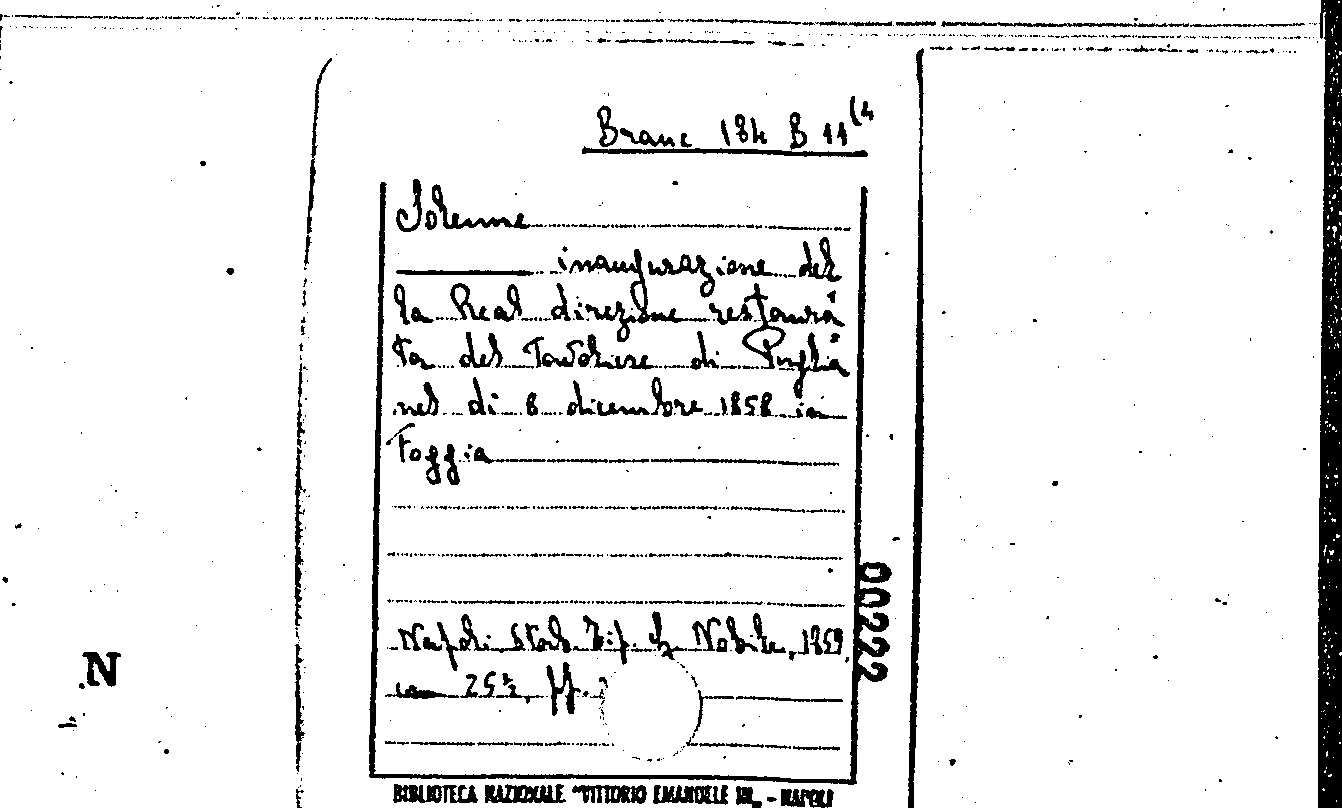 Branc 184 B 11(4
Solenne
inaugurazione del
la Real direzione restaura
ta del Tavoliere di Puglia
nel dì 8 dicembre 1858 in
Foggia
Napoli Stab. Tip. G. Nobile, 1859,
cm 25½, pp.
00222
N
BIBLIOTECA NAZIONALE "VITTORIO EMANUELE III„ - NAPOLI